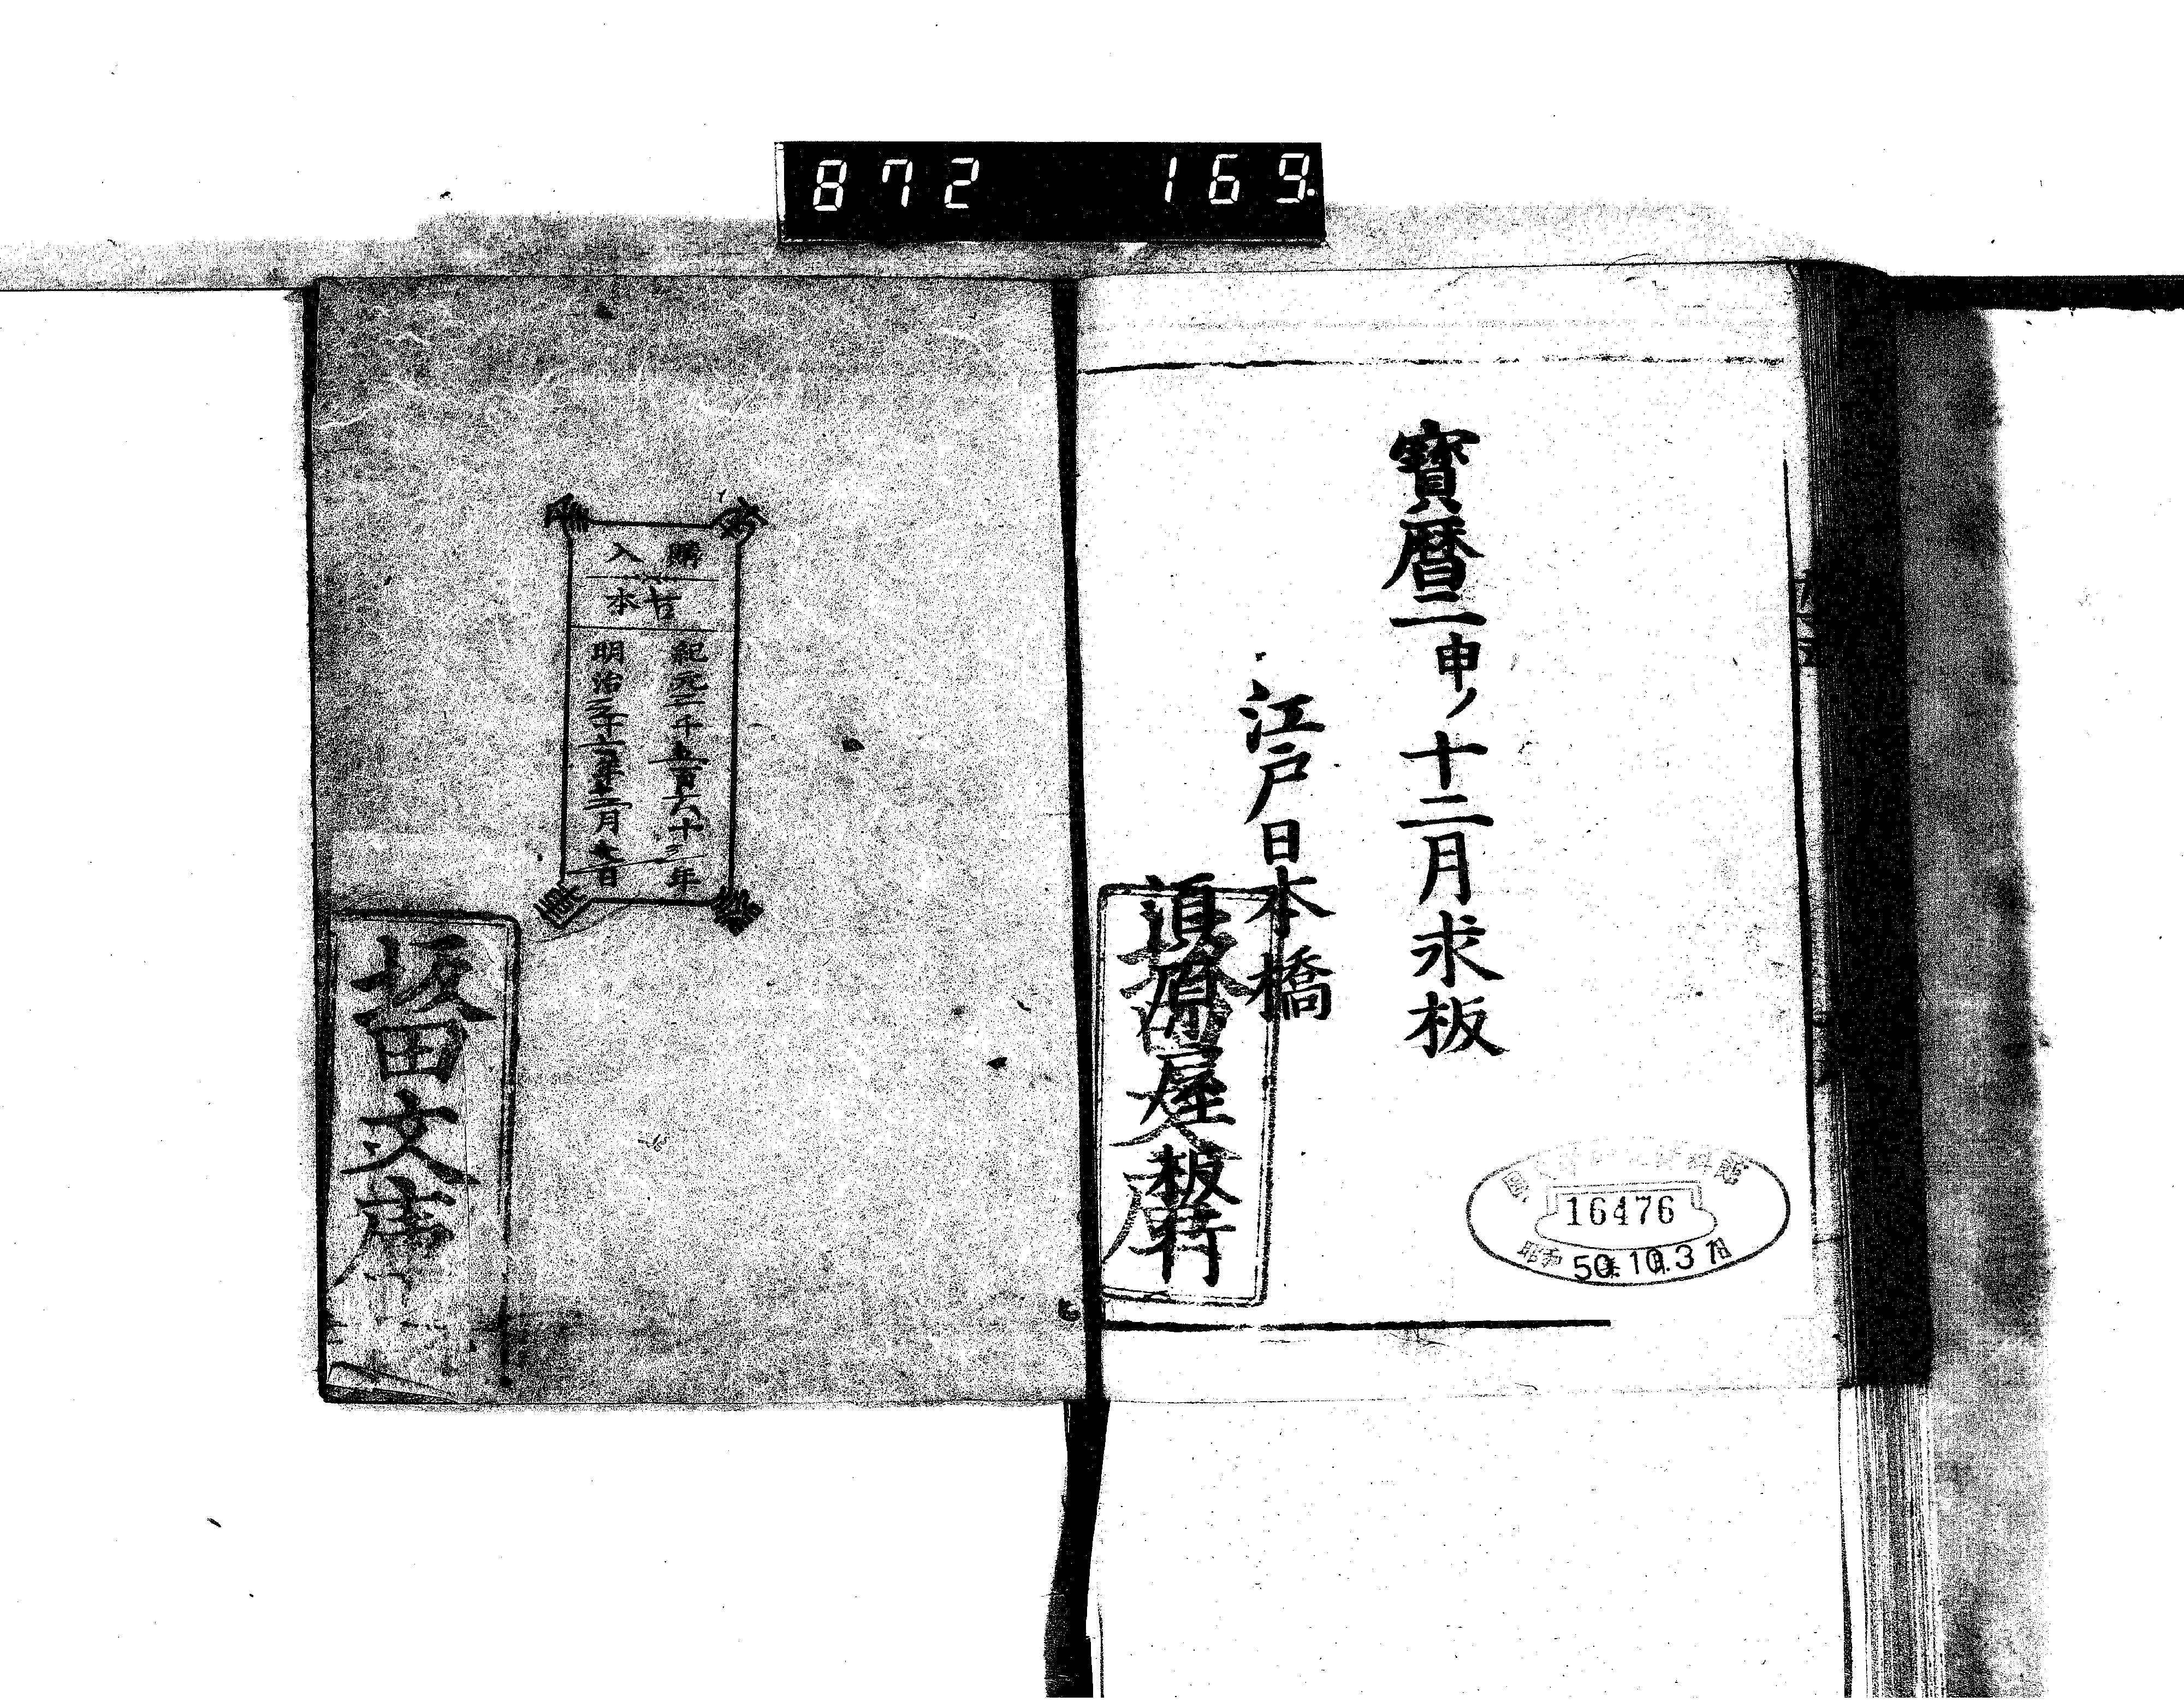 872 169
寶暦二申ノ十二月求板
江戸日本橋
須原屋板行
16476
昭和50.10.31
購入
古本
紀元二千五百六十三年
明治三十
月七日
坂田文庫